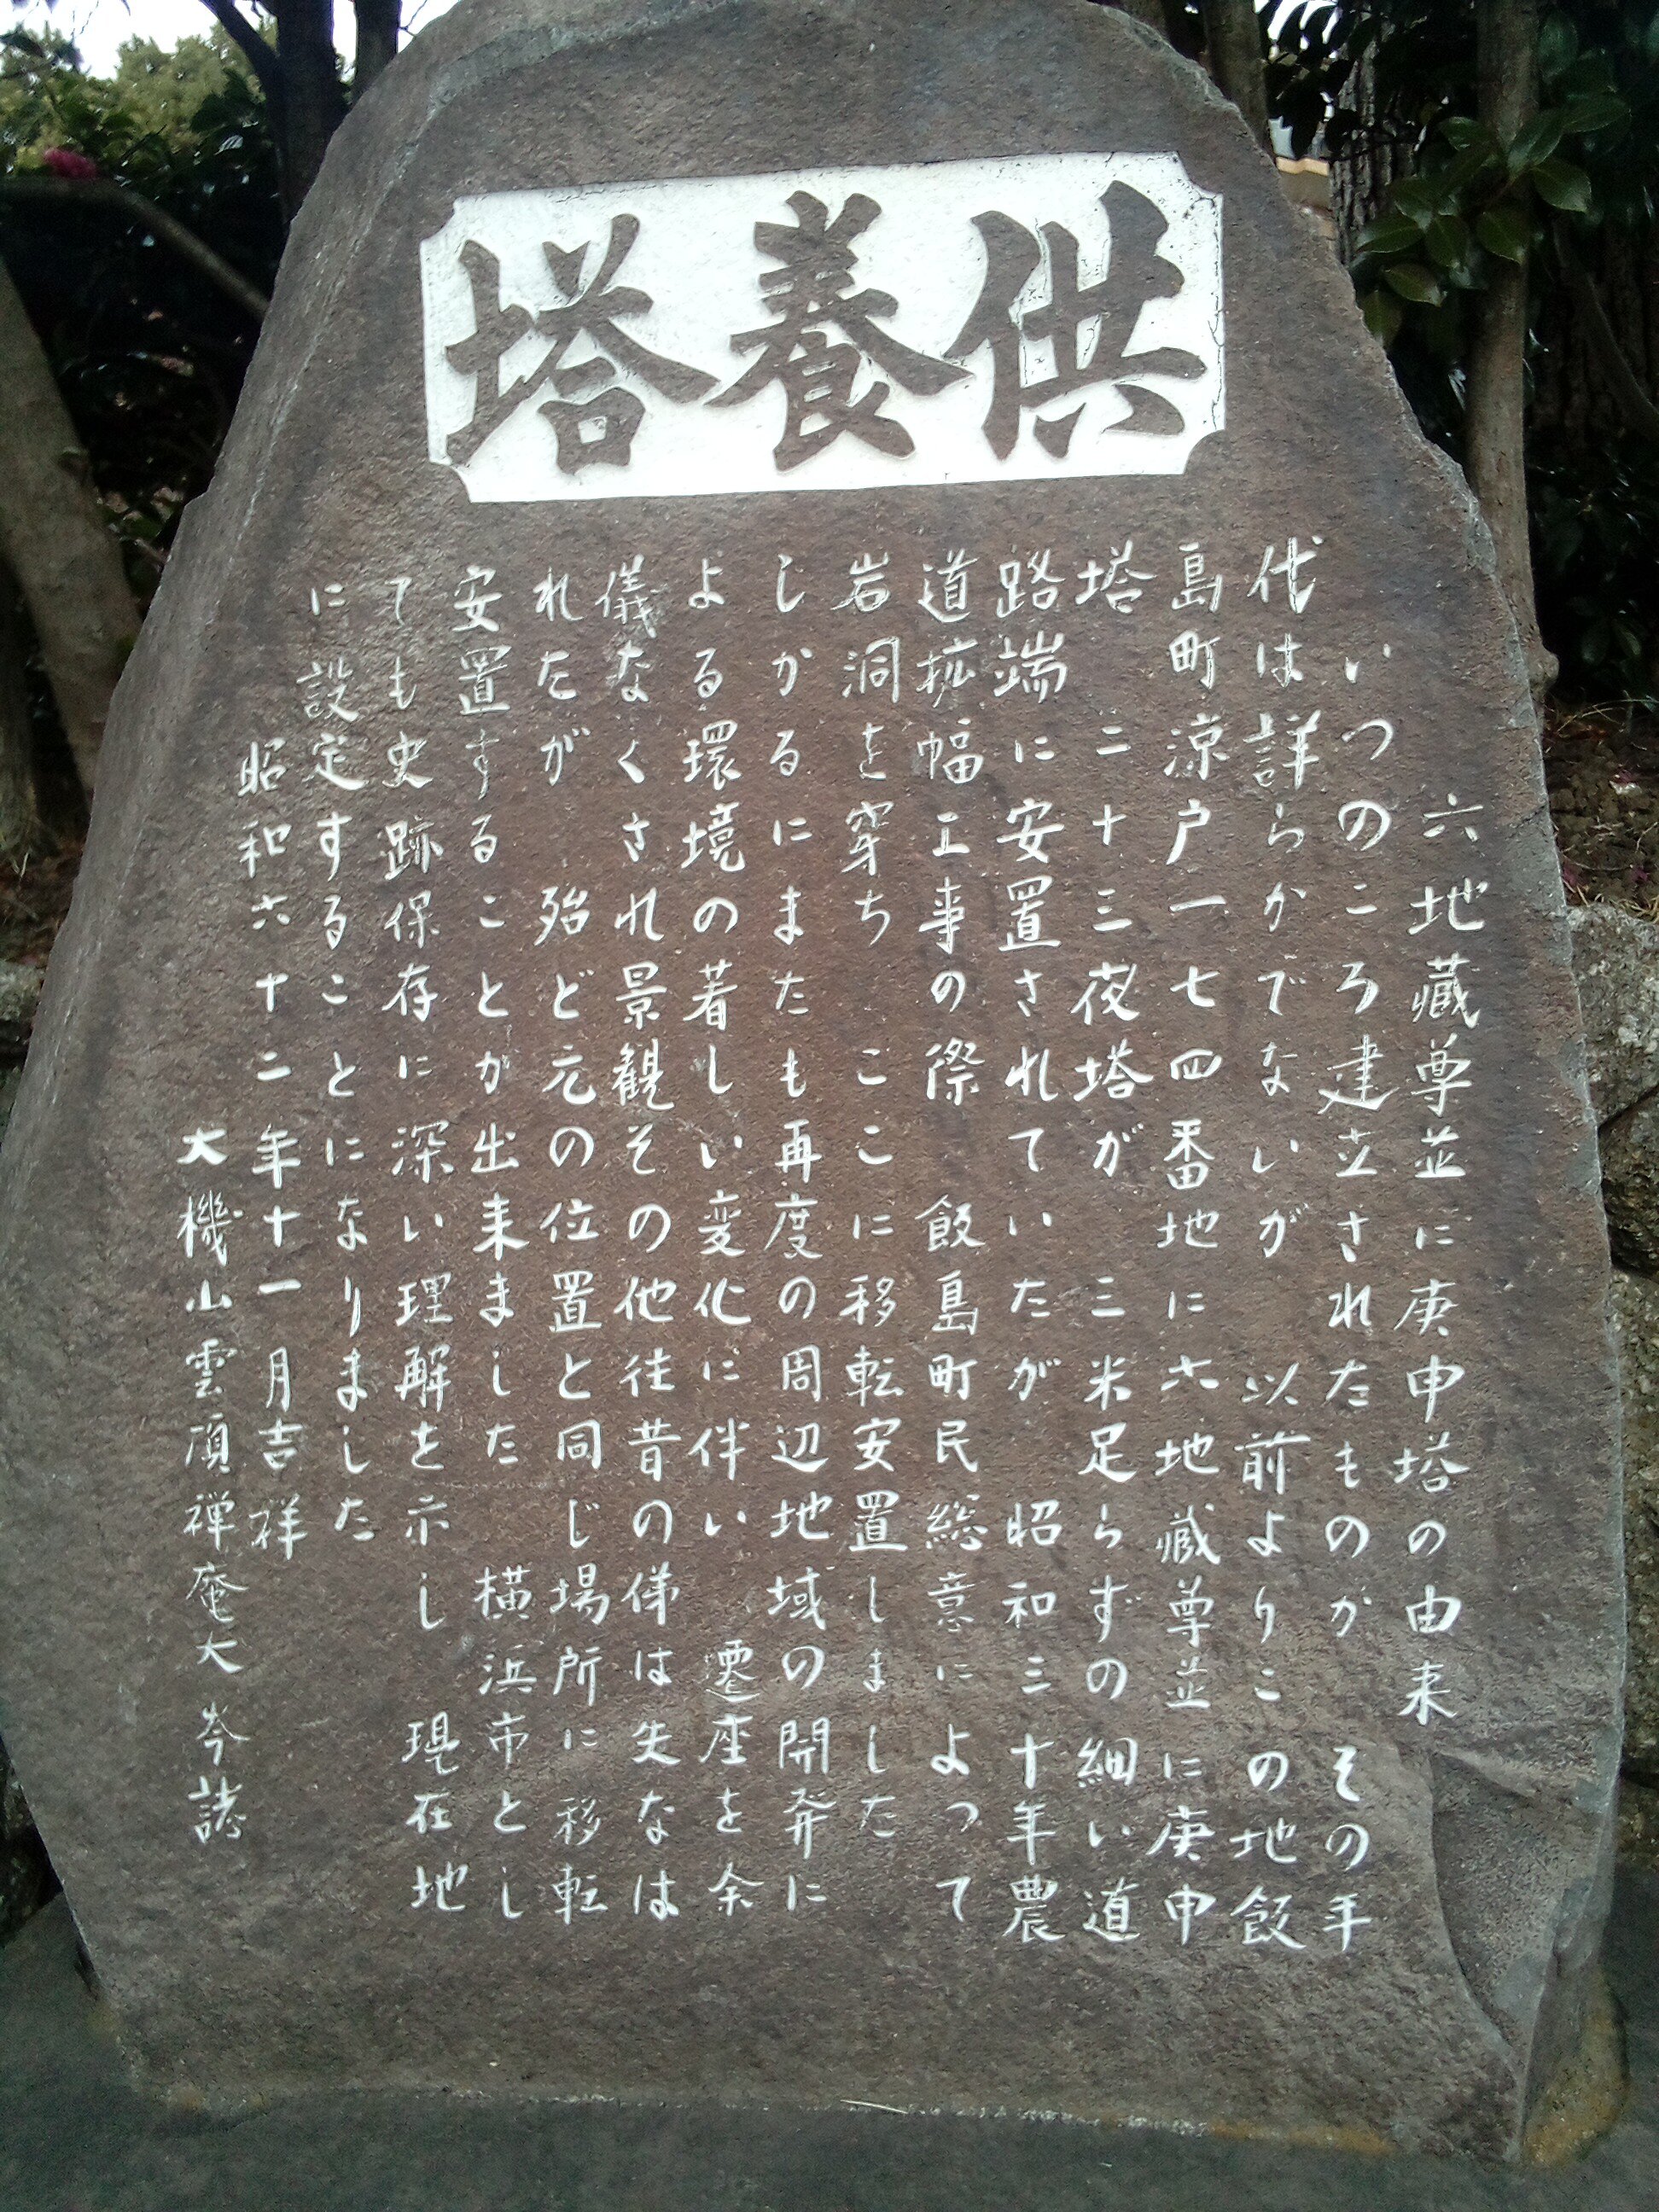 供養塔
六地蔵尊並に庚申塔の由来
いつのころ建立されたものか その年
代は詳らかでないが 以前よりこの地飯
島町涼戸一七四番地に六地蔵尊並に庚申
塔 二十三夜塔が 三米足らずの細い道
路端に安置されていたが 昭和三十年農
道拡幅工事の際 飯島町民総意によって
岩洞を穿ち ここに移転安置しました
しかるにまたも再度の周辺地域の開発に
よる環境の着しい変化に伴い 遷座を余
儀なくされ景観その他往昔の俤は失なは
れたが 殆ど元の位置と同じ場所に移転
安置することが出来ました 横浜市とし
ても史跡保存に深い理解を示し 現在地
に設定することになりました
昭和六十二年十一月吉祥
大機山雲頂禅庵大岑誌